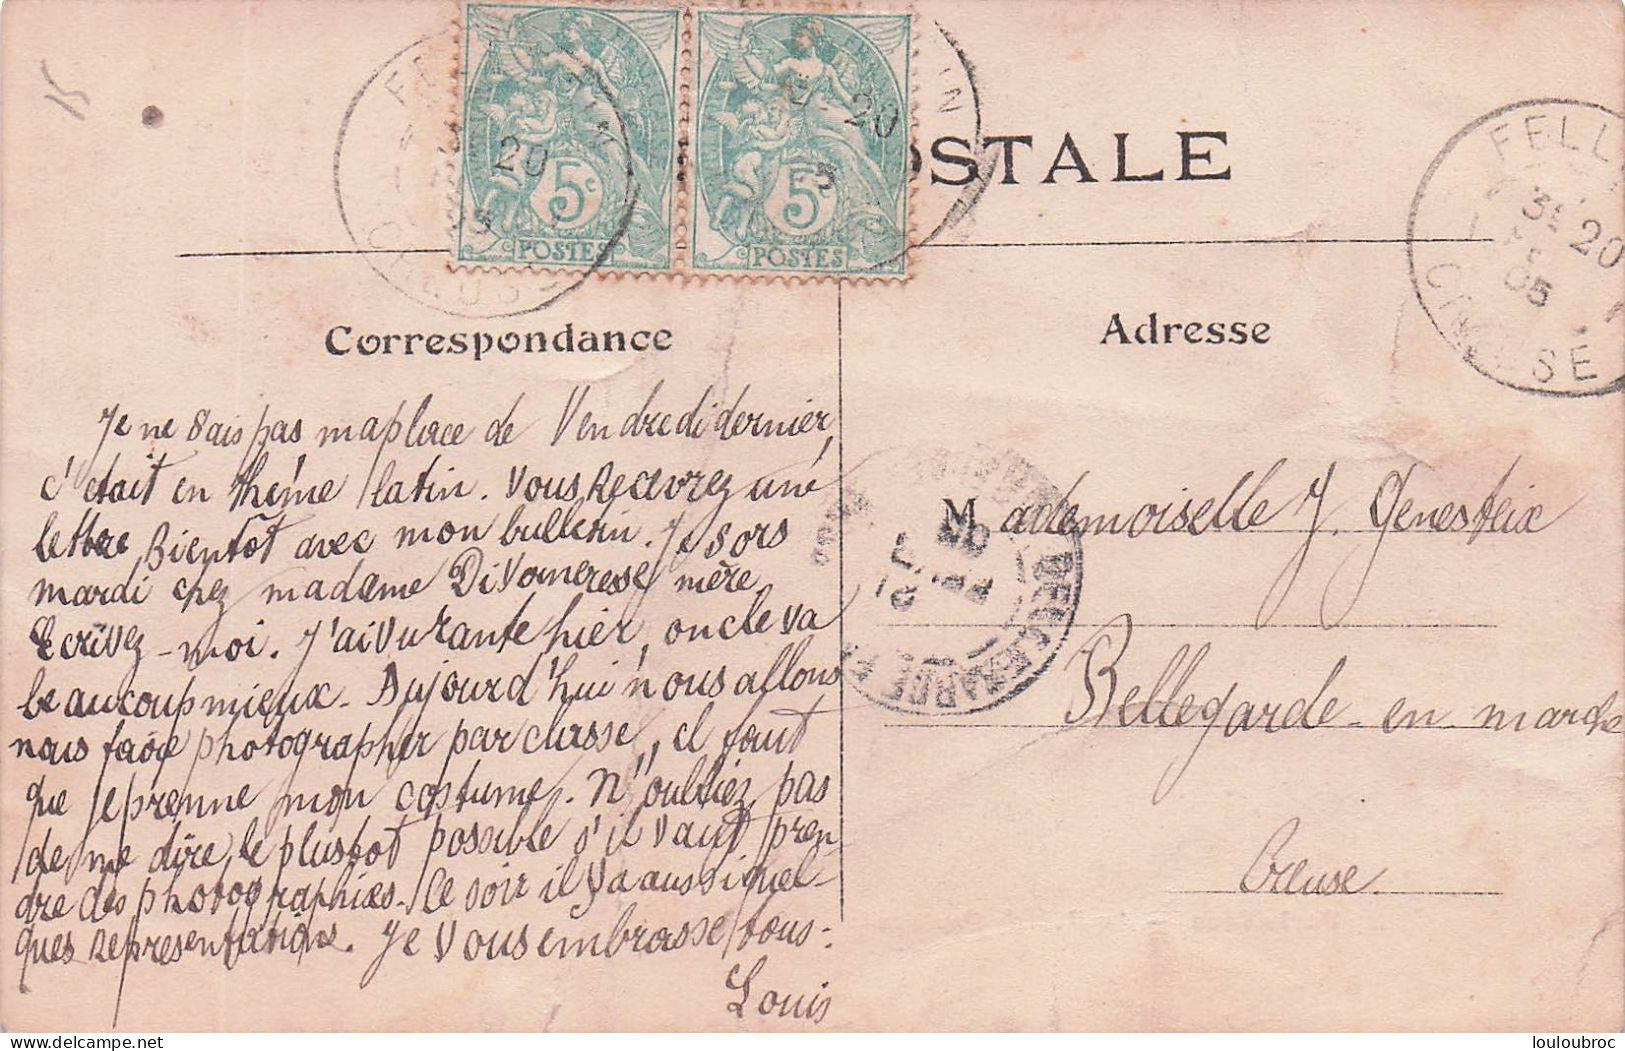 15
5c
POSTES
5c
POSTES
20
20
OSTALE
FELL
20
05
CREUSE
Correspondance
Je ne sais pas ma place de Vendredi dernier,
c'était en thème latin. Vous recevrez une
lettre bientôt avec mon bulletin. Je sors
mardi chez madame mère
Ecrivez-moi. J'ai vu tante hier, oncle va
beaucoup mieux. Aujourd'hui nous allons
nous faire photographer par classe, il faut
que je prenne mon costume. N'oubliez pas
de me dire le plustot possible s'il vaut pren
dre des photographies. Ce soir il y a aussi quel-
ques representations. Je vous embrasse tous.
Louis
Adresse
Mademoiselle J. Genesteix
Bellegarde-en-marche
Creuse.
louloubroc
delcampe.net